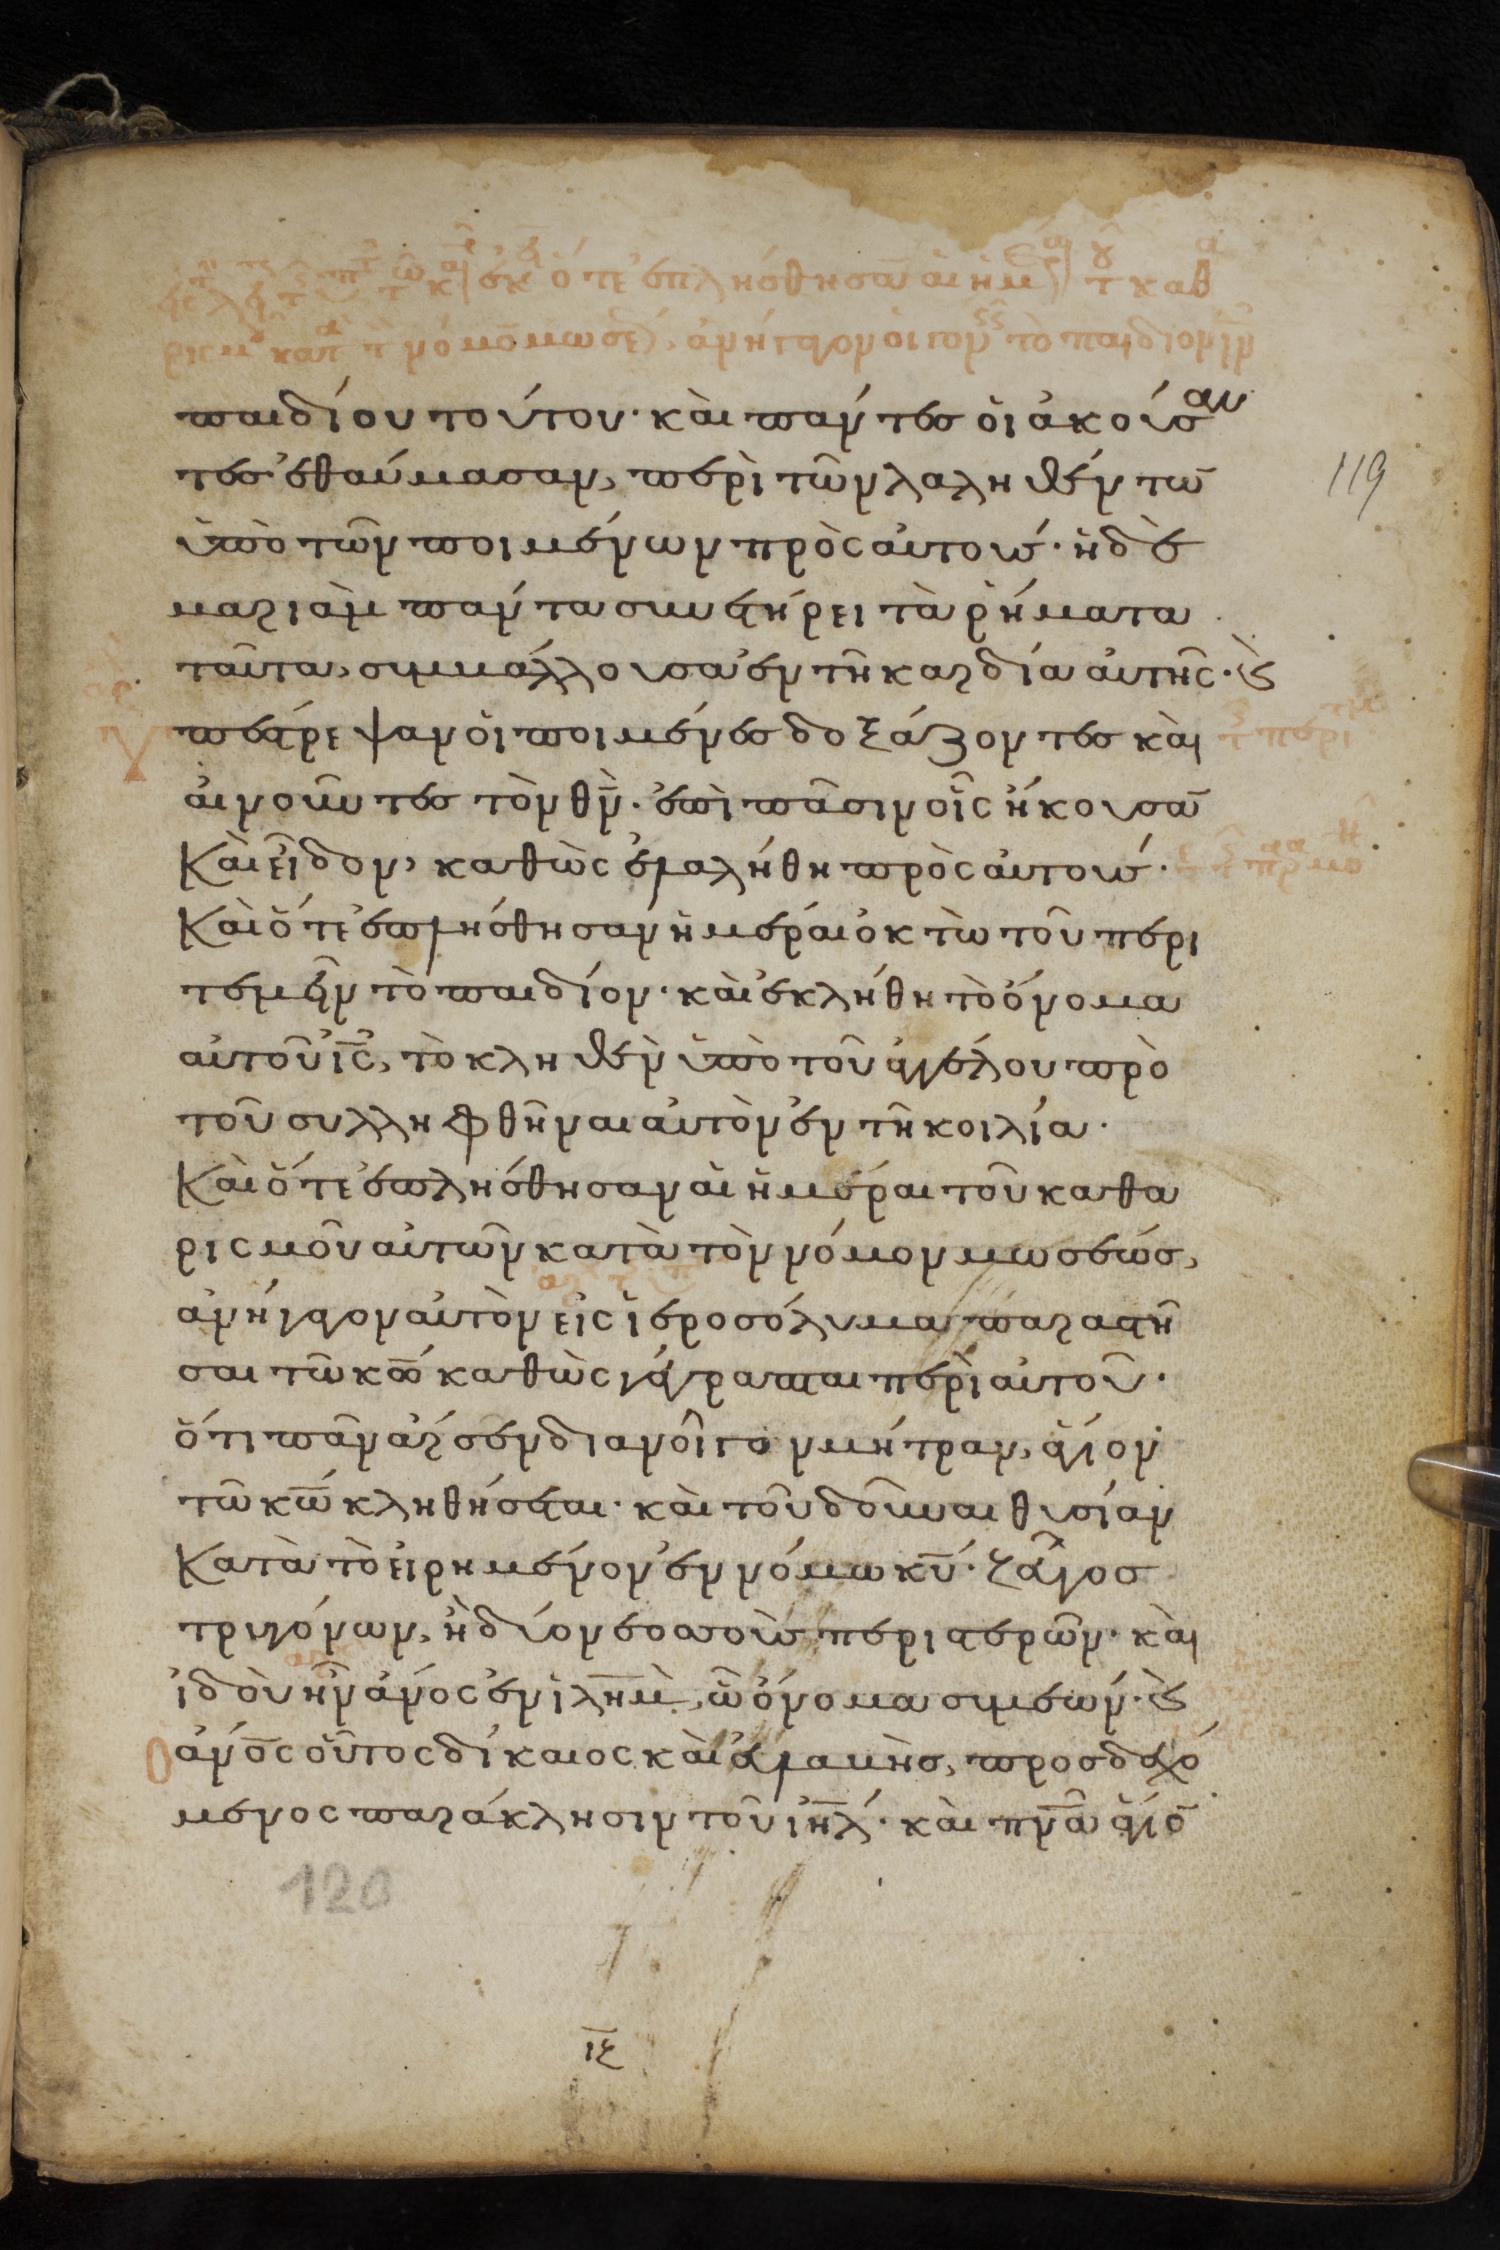 παιδίου τούτου· καὶ πάντες οἱ ἀκούσαν
τες ἐθαύμασαν, περὶ τῶν λαληθέντω̄
ὑπὸ τῶν ποιμένων πρὸς αὐτούς· ἡ δὲ
μαριὰμ πάντα συνετήρει τὰ ῥήματα
ταῦτα, συμβάλλουσα ἐν τῆ καρδία αὐτῆς· ὑ
πέστρεψαν οἱ ποιμένες δοξάζοντες καὶ
αἰνοῦντες τὸν θν̄· ἐπὶ πᾶσιν οἷς ἤκουσᾱ
Καὶ εἶδον, καθὼς ἐλαλήθη πρὸς αὐτούς·
Καὶ ὅτε ἐπλήσθησαν ἡμέραι ὀκτὼ τοῦ περι
τεμεῖν τὸ παιδίον· καὶ ἐκλήθη τὸ ὄνομα
αὐτοῦ ις̄, τὸ κληθὲν ὑπὸ τοῦ ἀγγέλου πρὸ
τοῦ συλληφθῆναι αὐτὸν ἐν τῆ κοιλία·
Καὶ ὅτε ἐπλήσθησαν αἱ ἡμέραι τοῦ καθα
ρισμοῦ αὐτῶν κατὰ τὸν νόμον μωσέως,
ἀνήγαγον αὐτὸν εἰς ἱεροσόλυμα παραστῆ
σαι τῶ κω̄ καθὼς γέγραπται περὶ αὐτοῦ·
ὅτι πᾶν ἄρσεν διανοῖγον μήτραν, ἅγιον
τῶ κω̄ κληθήσεται· καὶ τοῦ δοῦναι θυσίαν
Κατὰ τὸ εἰρημένον ἐν νόμω κῡ· ζεῦγος
τρυγόνων, ἢ δύο νεοσσοὺς περιστερῶν· καὶ
ἰδοὺ ἦν ἄνος ἐν ἱλη̄μ, ὧ ὄνομα συμεών· ὁ
ἄνο̄ς οὗτος δίκαιος καὶ εὐλαβὴς, προσδεχό
μενος παράκλησιν τοῦ ιη̄λ· καὶ πνᾱ ἅγιο̄
119
120
ιε̄